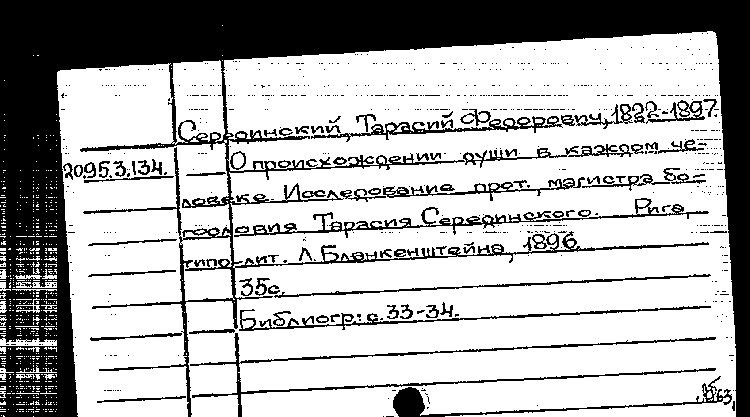 Серединский, Тарасий Федорович, 1822-1897
2095.3.134. О происхождении души в каждом че-
ловеке. Исследование прот., магистра бо-
гословия Тарасия Серединского. Рига,
типо-лит. Л. Бланкенштейна, 1896.
35с.
Библиогр: с. 33-34.